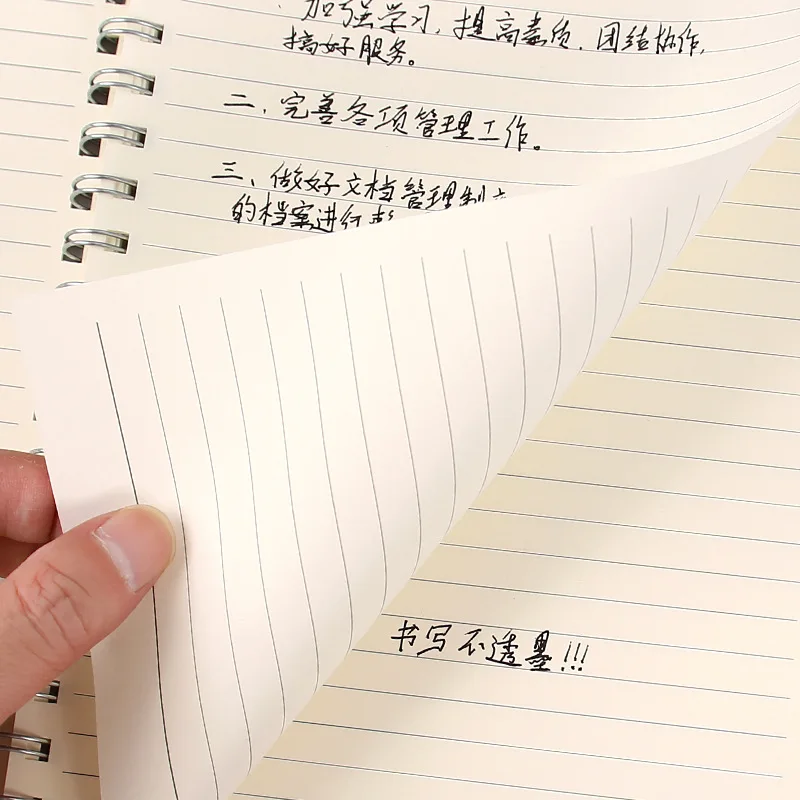 加强学习,提高素质.团结协作,
搞好服务。
二、完善各项管理工作。
三、做好文档管理制
的档案进行
书写不透墨!!!